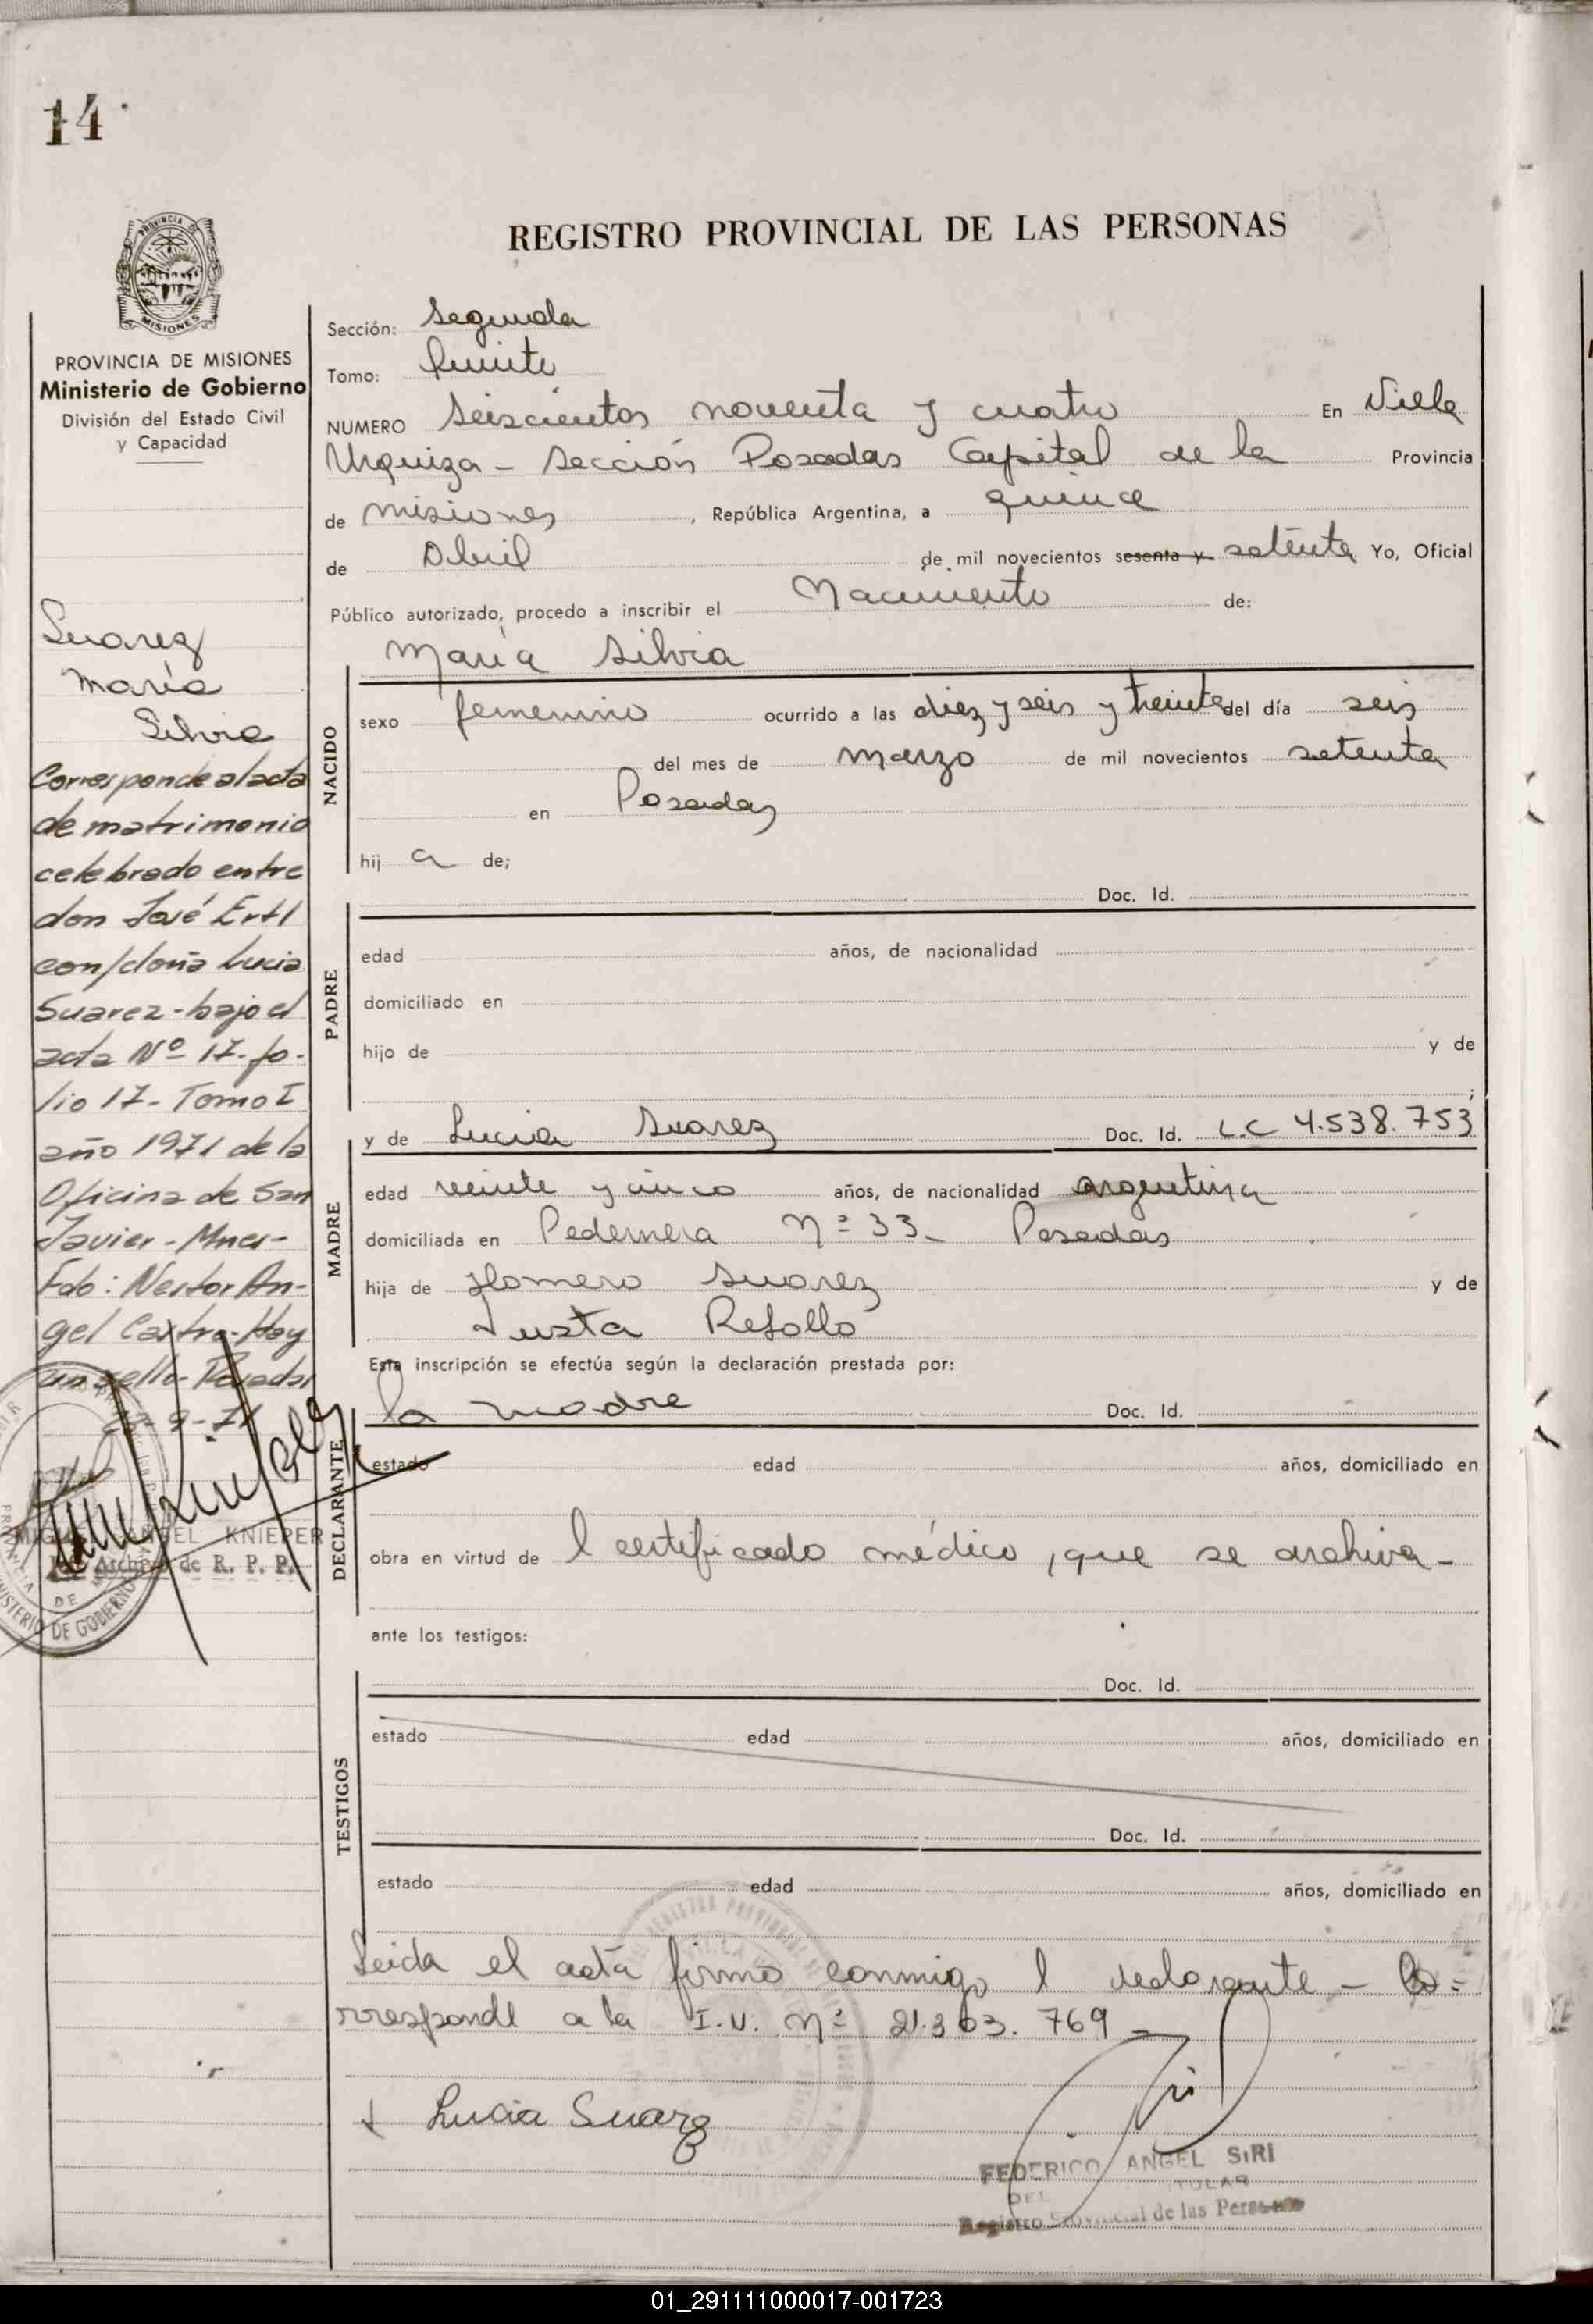 14
REGISTRO PROVINCIAL DE LAS PERSONAS
PROVINCIA DE MISIONES
Ministerio de Gobierno
División del Estado Civil
y Capacidad
Suarez
María
Silvia
Corresponde al acta
de matrimonio
celebrado entre
don José Ertl
con/doña Lucia
Suarez - bajo el
acta Nº 17 - fo-
lio 17 - Tomo I
año 1971 de la
Oficina de San
Javier - Mnes -
Fdo: Nestor An-
gel Castro - Hay
un sello - Posadas
9-71
MIGUEL ANGEL KNIEPER
Archivo de R. P. P.
Sección: Segunda
Tomo: Quinto
NUMERO Seiscientos noventa y cuatro En Villa
Urquiza - Sección Posadas Capital de la Provincia
de Misiones, República Argentina, a quince
de Abril de mil novecientos sesenta y setenta Yo, Oficial
Público autorizado, procedo a inscribir el Nacimiento de:
María Silvia
NACIDO
sexo femenino ocurrido a las diez y seis y treinta del día seis
del mes de marzo de mil novecientos setenta
en Posadas
hij a de;
Doc. Id.
PADRE
edad años, de nacionalidad
domiciliado en
hijo de y de
;
y de Lucia Suarez Doc. Id. L.C 4.538.753
MADRE
edad veinte y cinco años, de nacionalidad argentina
domiciliada en Pedernera Nº 33 - Posadas
hija de Homero Suarez y de
Justa Refollo
Esta inscripción se efectúa según la declaración prestada por:
la madre Doc. Id.
DECLARANTE
estado edad años, domiciliado en
obra en virtud de l certificado médico, que se archiva -
ante los testigos:
Doc. Id.
TESTIGOS
estado edad años, domiciliado en
Doc. Id.
estado edad años, domiciliado en
Leida el acta firma conmigo l declarante - Co=
rresponde a la I.U. Nº 21.303.769 -
Lucia Suarez
FEDERICO ANGEL SIRI
TITULAR
DEL
Registro Provincial de las Personas
01_291111000017-001723